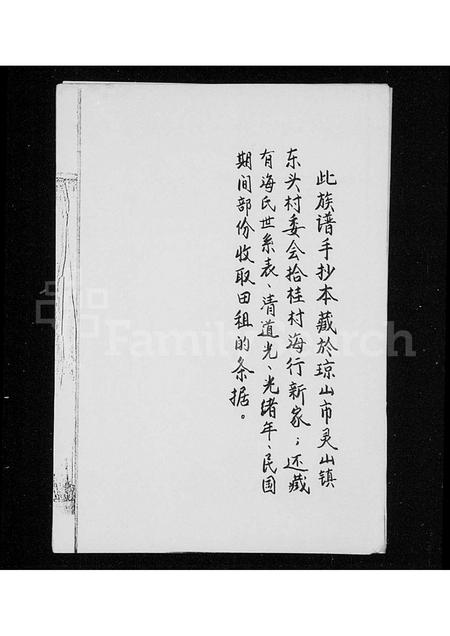 此族谱手抄本藏於琼山市灵山镇
东头村委会拾桂村海行新家；还藏
有海氏世系表、清道光、光绪年、民国
期间部份收取田租的条据。
FamilySearch